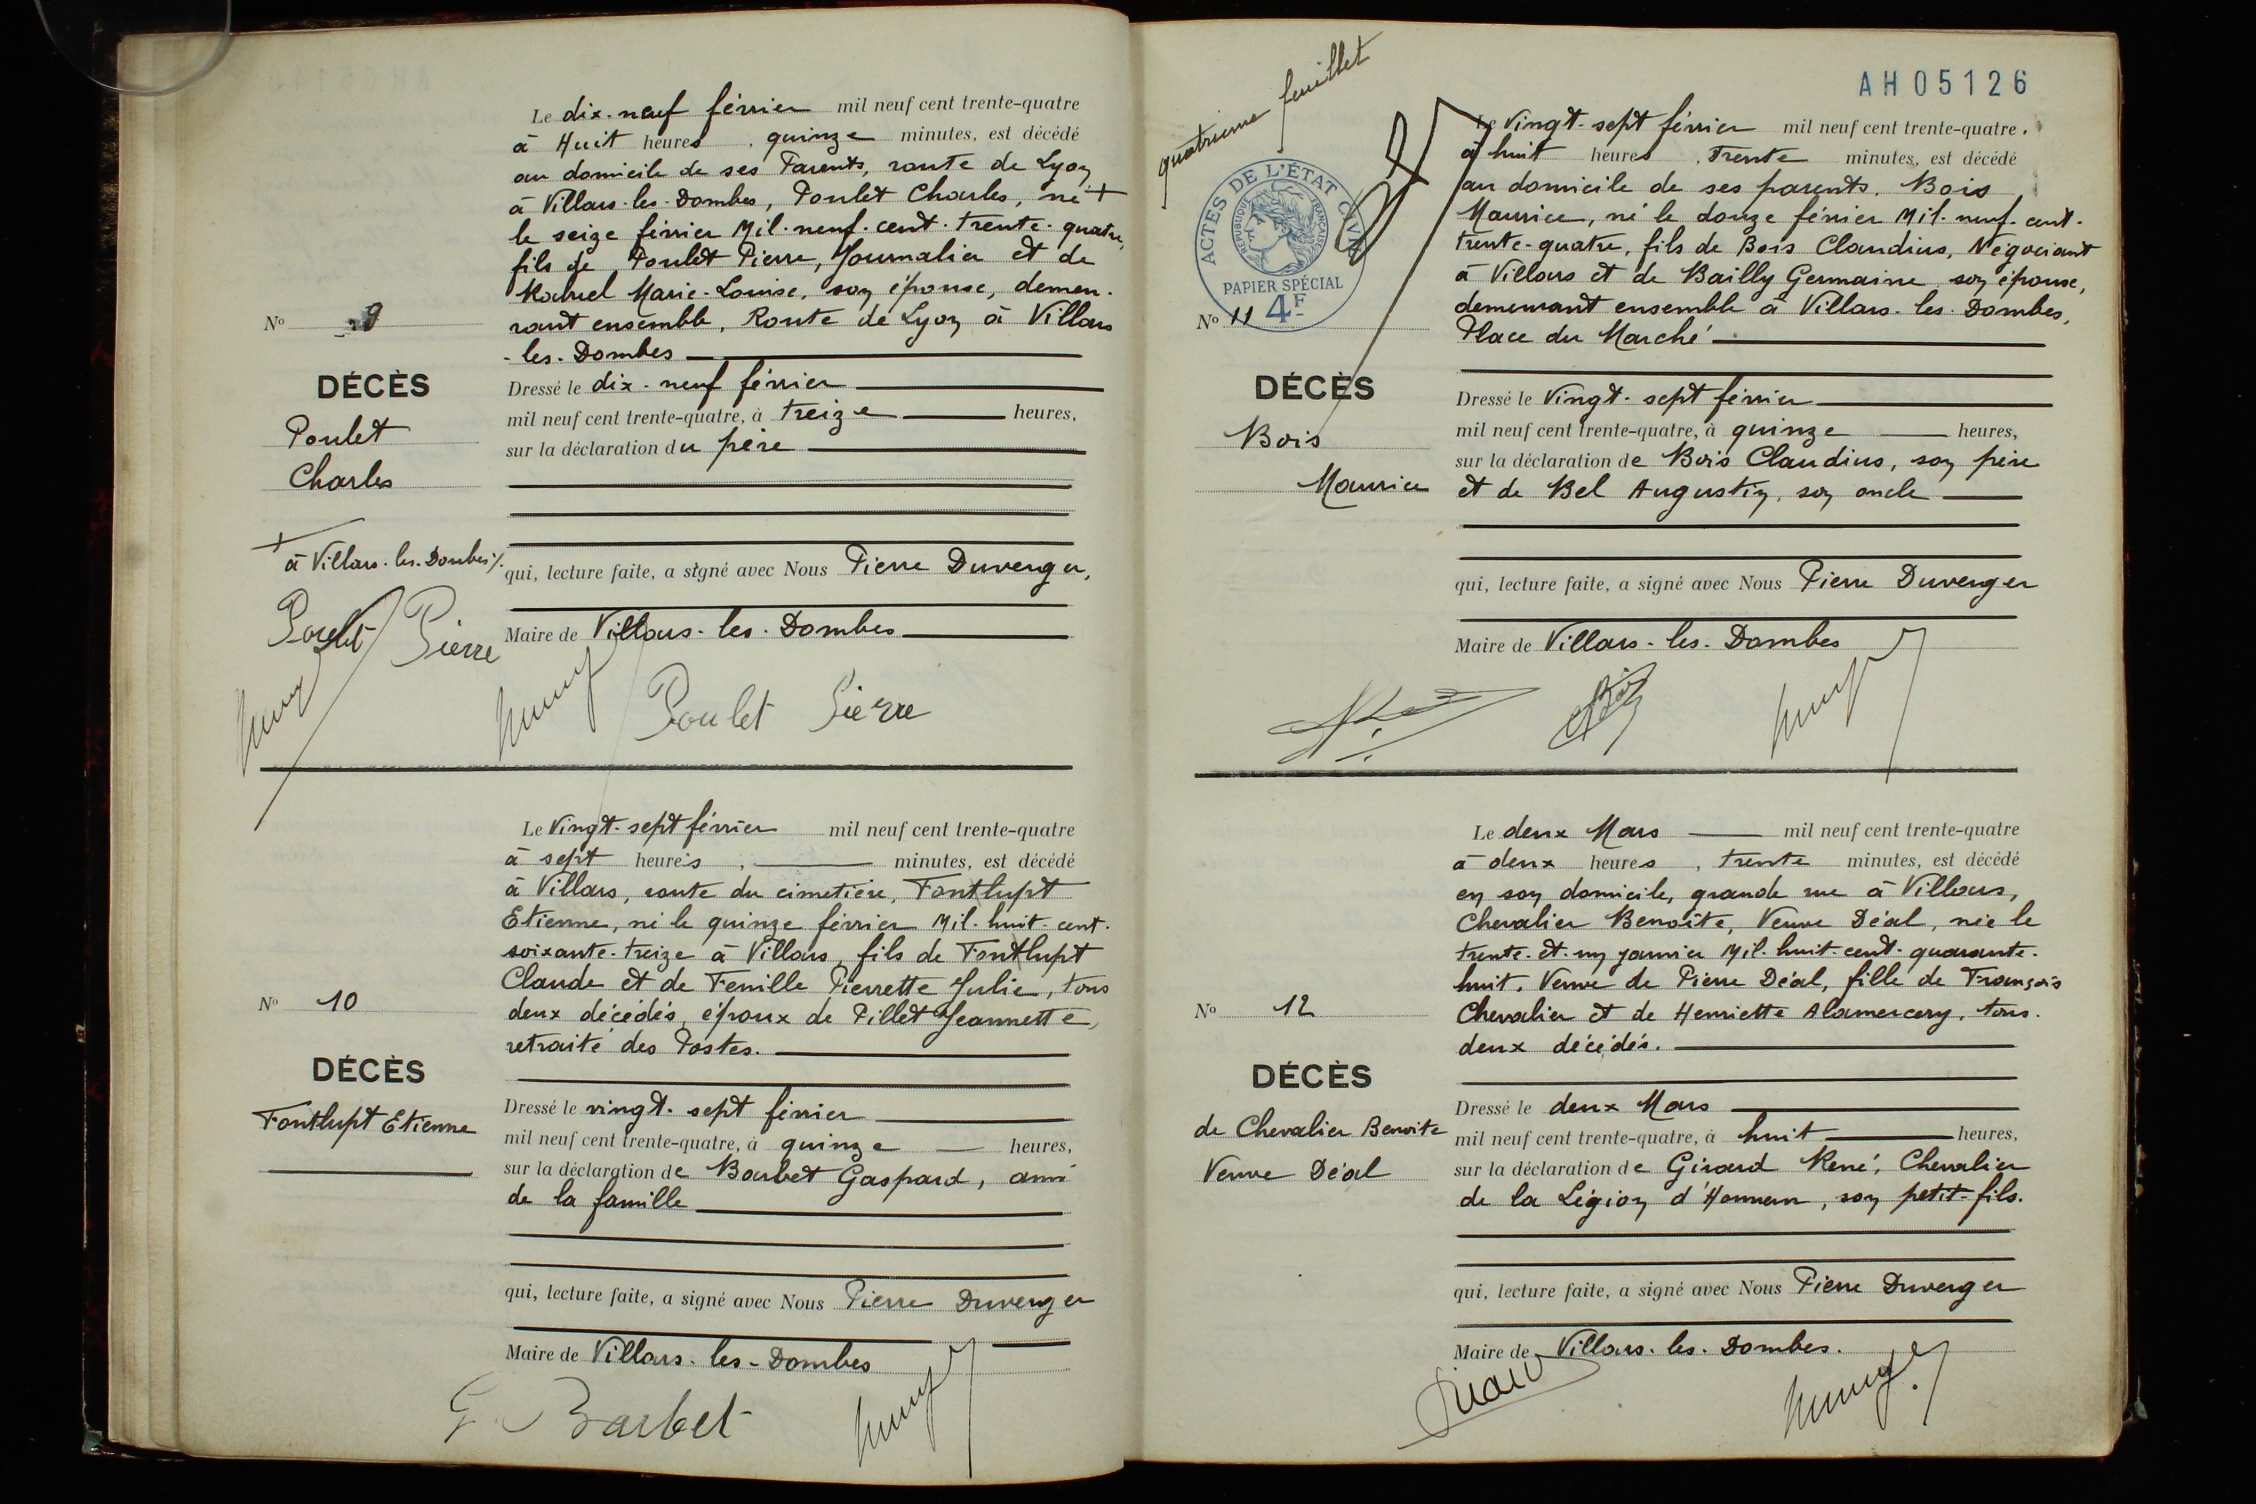 Le dix-neuf février mil neuf cent trente-quatre
à Huit heures, quinze minutes, est décédé
au domicile de ses Parents, route de Lyon
à Villars-les-Dombes, Poulet Charles, né +
le seize février Mil-neuf-cent-trente-quatre,
fils de Poulet Pierre, Journalier et de
Marie-Louise, son épouse, demeu-
rant ensemble, Route de Lyon à Villars
-les-Dombes
Nº 9
DÉCÈS
Poulet
Charles
Dressé le dix-neuf février
mil neuf cent trente-quatre, à treize heures,
sur la déclaration du père
+ à Villars-les-Dombes
qui, lecture faite, a signé avec Nous Pierre Duverger,
Maire de Villars-les-Dombes
Poulet Pierre
Poulet Pierre
Le Vingt-sept février mil neuf cent trente-quatre
à sept heures, minutes, est décédé
à Villars, route du cimetière, Fontlupt
Etienne, né le quinze février Mil-huit-cent-
soixante-treize à Villars, fils de Fontlupt
Claude et de Feuille Pierrette Julie, tous
deux décédés, époux de Pillet Jeannette,
retraité des Postes.
Nº 10
DÉCÈS
Fontlupt Etienne
Dressé le vingt-sept février
mil neuf cent trente-quatre, à quinze heures,
sur la déclaration de Barbet Gaspard, ami
de la famille
qui, lecture faite, a signé avec Nous Pierre Duverger
Maire de Villars-les-Dombes
G. Barbet
quatrième feuillet
AH05126
ACTES DE L'ÉTAT CIVIL
RÉPUBLIQUE FRANÇAISE
PAPIER SPÉCIAL
4F
Le Vingt-sept février mil neuf cent trente-quatre,
à huit heures, Trente minutes, est décédé
au domicile de ses parents, Bois
Maurice, né le douze février Mil-neuf-cent-
trente-quatre, fils de Bois Claudius, Négociant
à Villars et de Bailly Germaine son épouse,
demeurant ensemble à Villars-les-Dombes,
Place du Marché
Nº 11
DÉCÈS
Bois
Maurice
Dressé le Vingt-sept février
mil neuf cent trente-quatre, à quinze heures,
sur la déclaration de Bois Claudius, son père
et de Bel Augustin, son oncle
qui, lecture faite, a signé avec Nous Pierre Duverger
Maire de Villars-les-Dombes
Le deux Mars mil neuf cent trente-quatre
à deux heures, trente minutes, est décédé
en son domicile, grande rue à Villars,
Chevalier Benoîte, Veuve Déal, née le
trente-et-un janvier Mil-huit-cent-quarante-
huit, Veuve de Pierre Déal, fille de François
Chevalier et de Henriette Alamercery, tous
deux décédés.
Nº 12
DÉCÈS
de Chevalier Benoite
Veuve Déal
Dressé le deux Mars
mil neuf cent trente-quatre, à huit heures,
sur la déclaration de Girard René, Chevalier
de la Légion d'Honneur, son petit-fils.
qui, lecture faite, a signé avec Nous Pierre Duverger
Maire de Villars-les-Dombes.